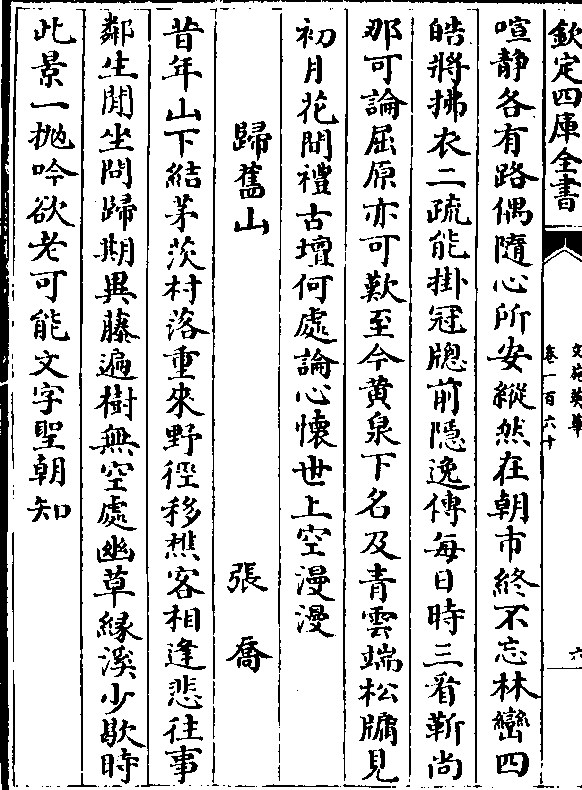 欽定四庫全書
文苑英華
卷一百六十
六
喧静各有路偶隨心所安縱然在朝市終不忘林巒四
皓將拂衣二疏能掛冠牎前隱逸傳每日時三看靳尚
那可論屈原亦可歎至今黄泉下名及青雲端松牖見
初月花間禮古壇何處論心懷世上空漫漫
歸舊山
張喬
昔年山下結茅茨村落重來野徑移樵客相逢悲往事
鄰生閒坐問歸期異藤遍樹無空處幽草緣溪少歇時
此景一抛吟欲老可能文字聖朝知